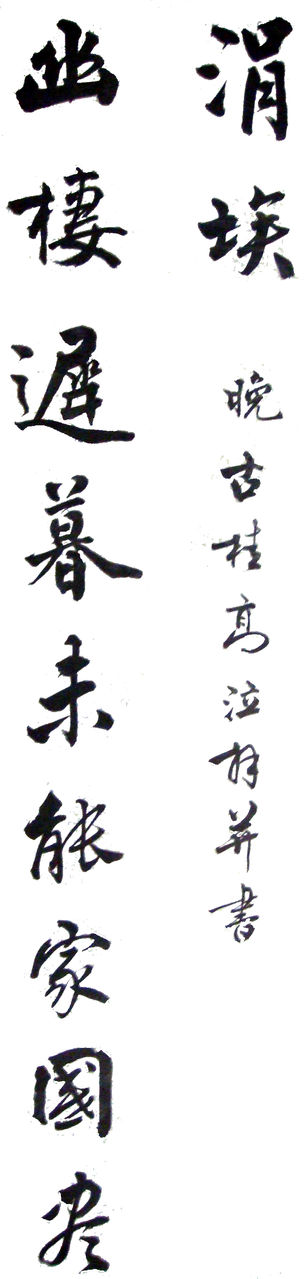 幽棲遲暮未能家國盡
涓埃
晚古桂高泣拜并書